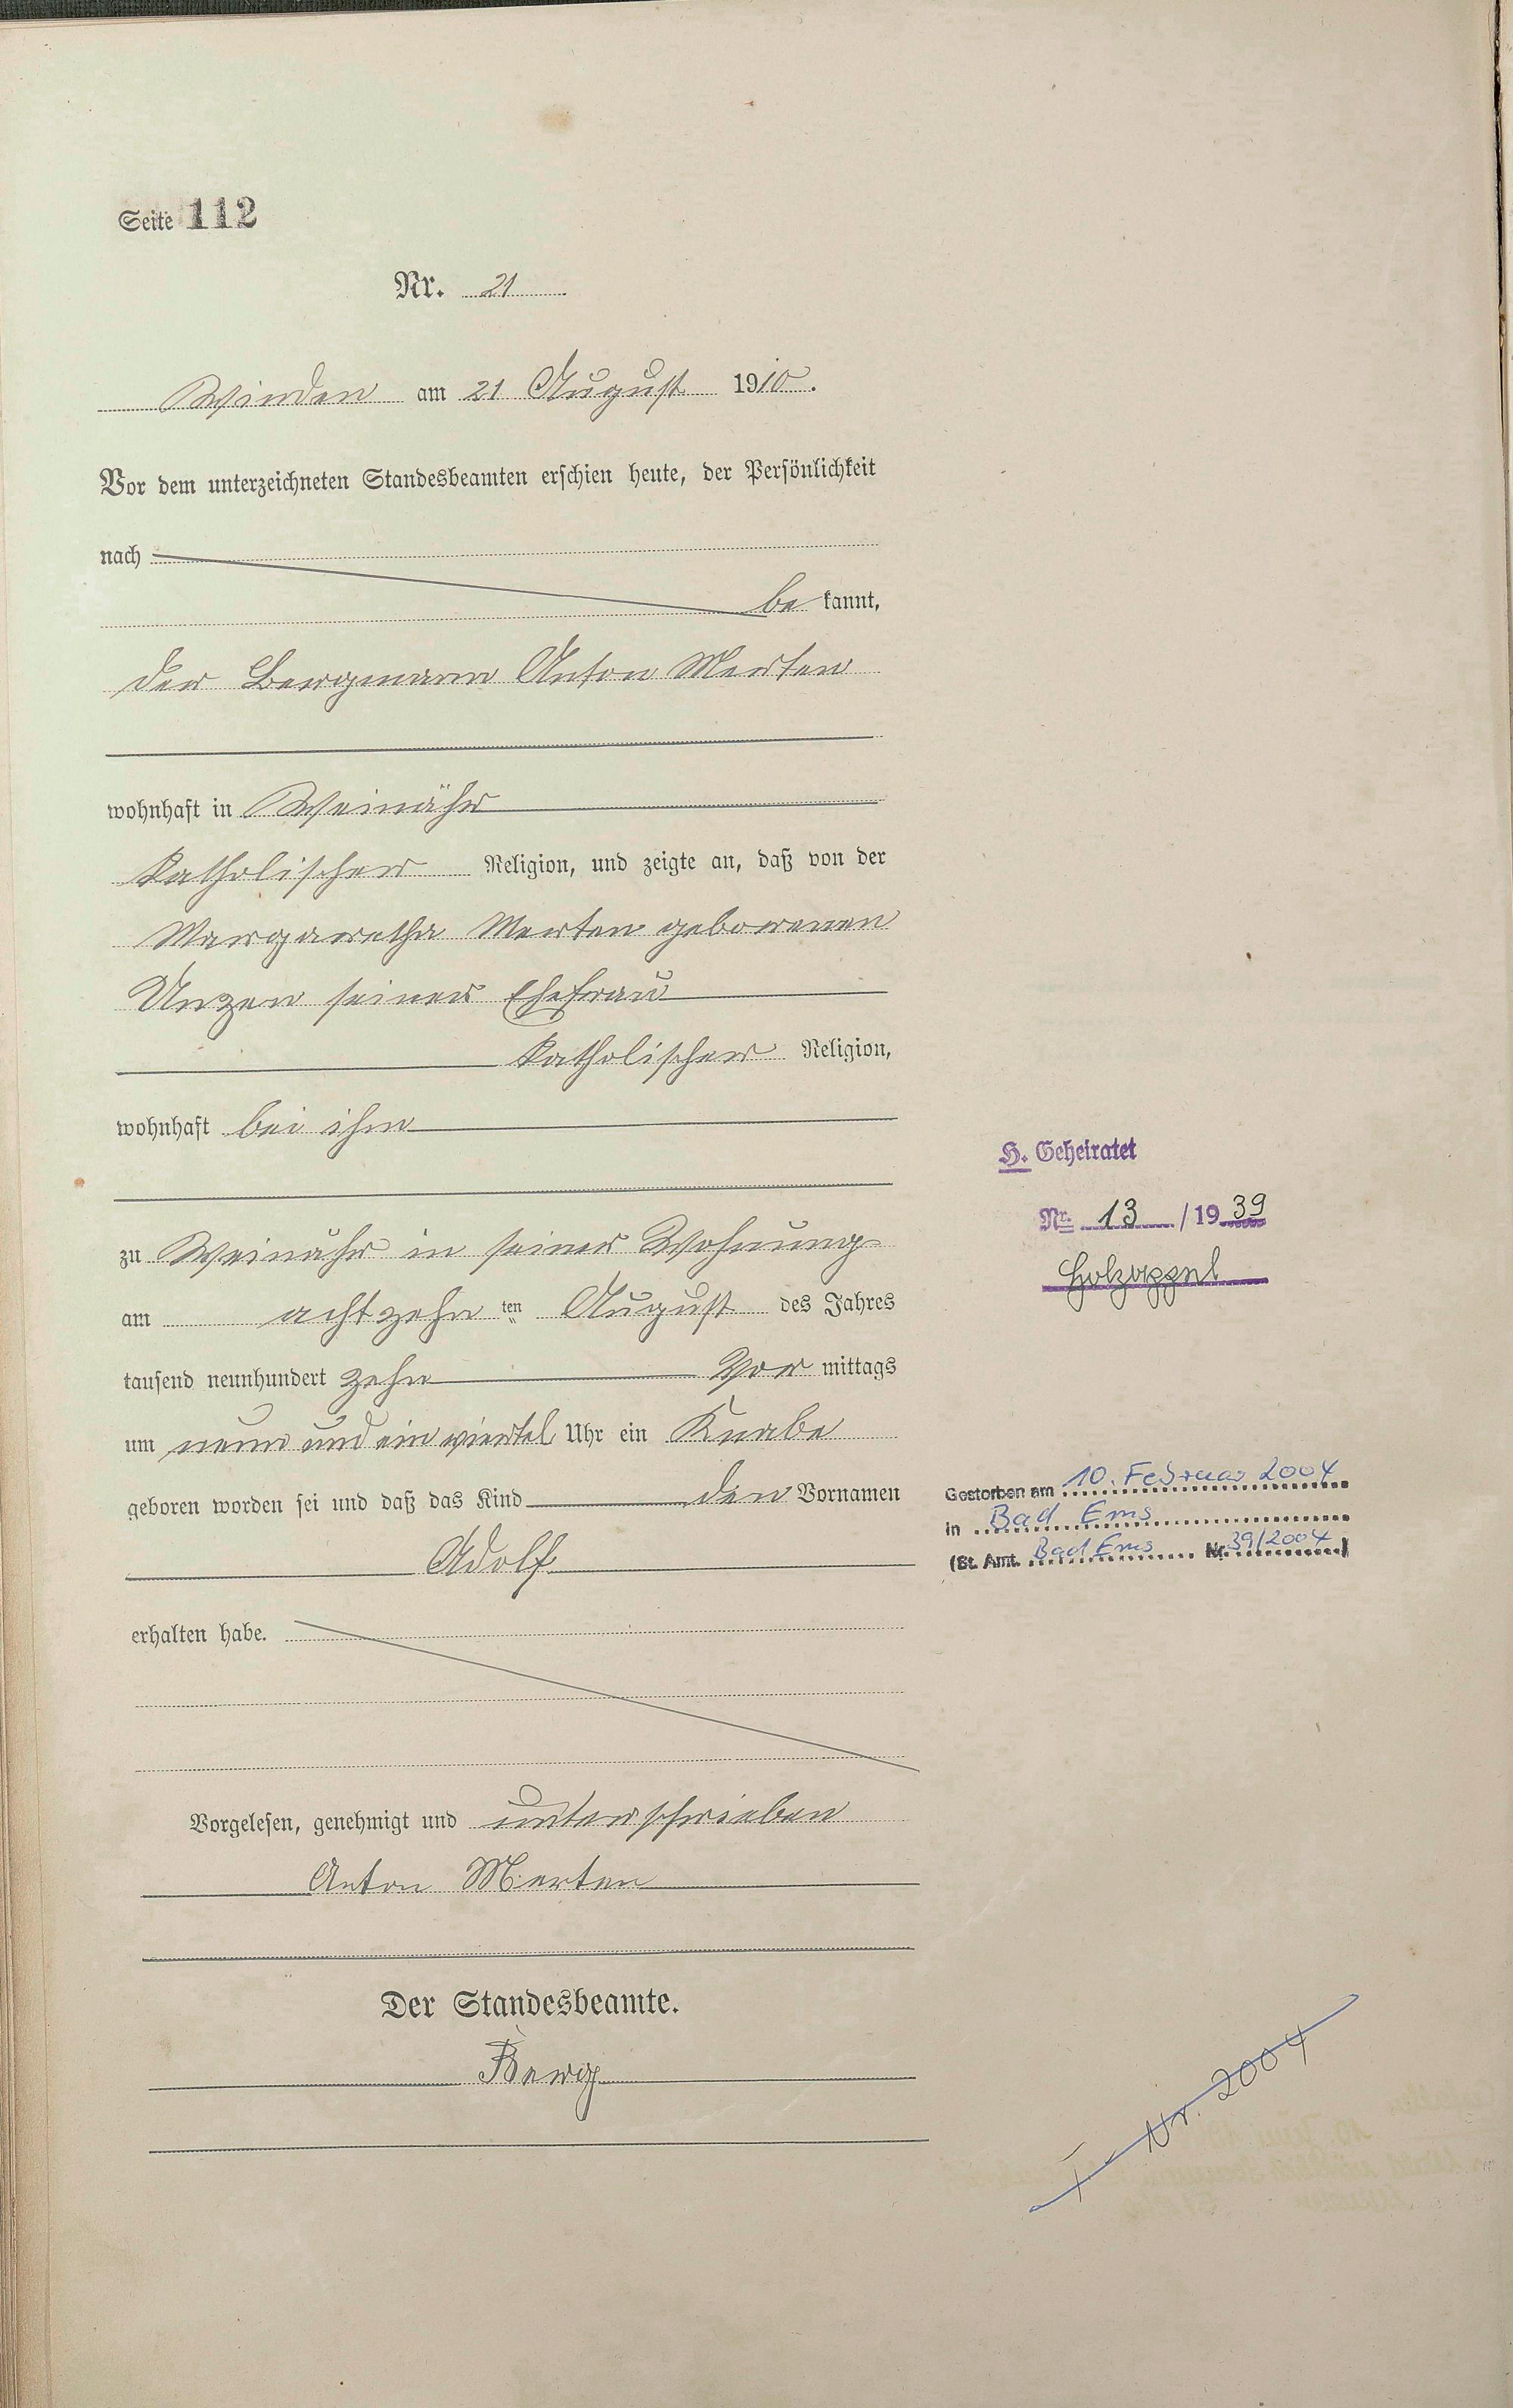 Seite 112
Nr. 21
Winden am 21 August 1910.
Vor dem unterzeichneten Standesbeamten erschien heute, der Persönlichkeit
nach
be kannt,
der Bergmann Anton Merten
wohnhaft in Weinähr
katholischer Religion, und zeigte an, daß von der
Margaretha Merten geborenen
Unzen seiner Ehefrau
katholischer Religion,
wohnhaft bei ihm
zu Weinähr in seiner Wohnung
am achtzehn ten August des Jahres
tausend neunhundert zehn Vor mittags
um neun und ein viertel Uhr ein Knabe
geboren worden sei und daß das Kind den Vornamen
Adolf
erhalten habe.
Vorgelesen, genehmigt und unterschrieben
Anton Merten
Der Standesbeamte.
Berg
H. Geheiratet
Nr. 13 / 19 39
Holzappel
Gestorben am 10. Februar 2004
in Bad Ems
(St. Amt. Bad Ems Nr. 39/2004)
Nr. 2004